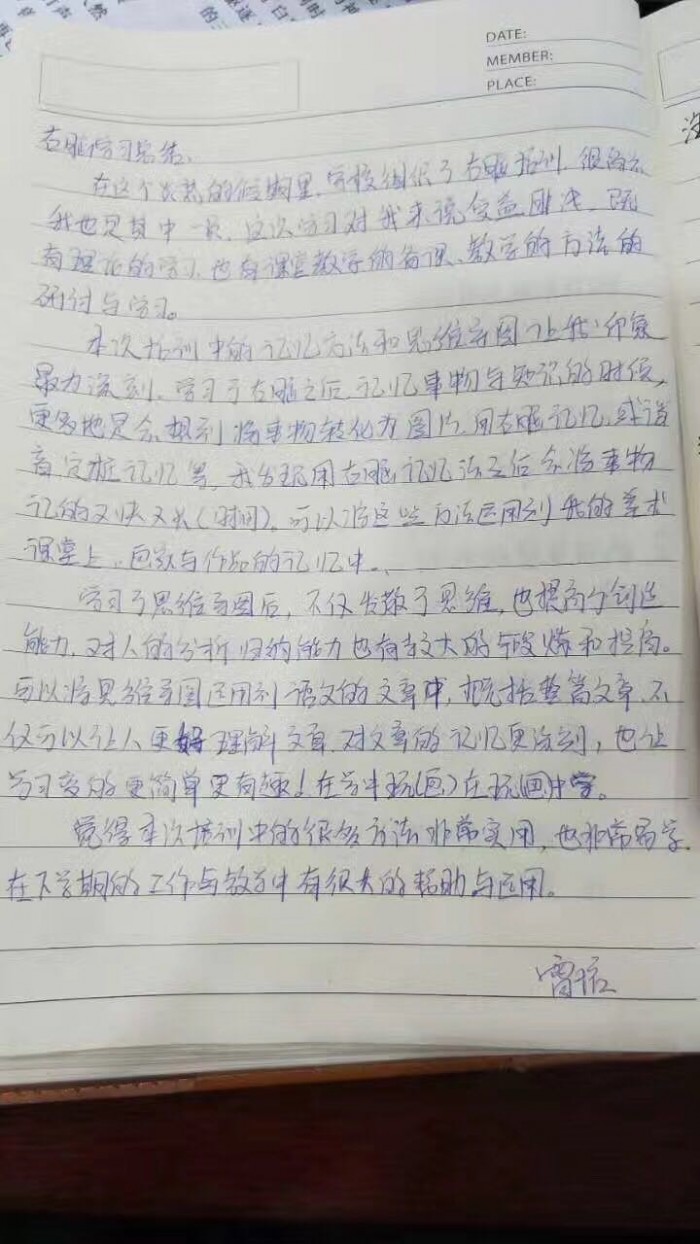 DATE:
MEMBER:
PLACE:
右脑学习总结。
在这个炎热的假期里,学校组织了右脑培训,很高兴
我也是其中一员,这次学习对我来说受益匪浅,既
有理论的学习,也有课堂教学的备课、教学的方法的
研讨与学习。
本次培训中的记忆方法和思维导图让我印象
最为深刻。学习了右脑之后,记忆事物与知识的时候,
更多地是会想到将事物转化为图片,用右脑记忆,或谐
音定桩记忆等,我发现用右脑记忆法之后会将事物
记的又快又长(时间),可以将这些方法运用到我的美术
课堂上,画家与作品的记忆中。
学习了思维导图后,不仅发散了思维,也提高了创造
能力,对人的分析归纳能力也有较大的锻炼和提高。
可以将思维导图运用到语文的文章中,概括整篇文章,不
仅可以让人更好理解文章,对文章的记忆更深刻,也让
学习变的更简单更有趣!在学中玩(画)在玩画中学。
觉得本次培训中的很多方法非常实用,也非常易学,
在下学期的工作与教学中有很大的帮助与运用。